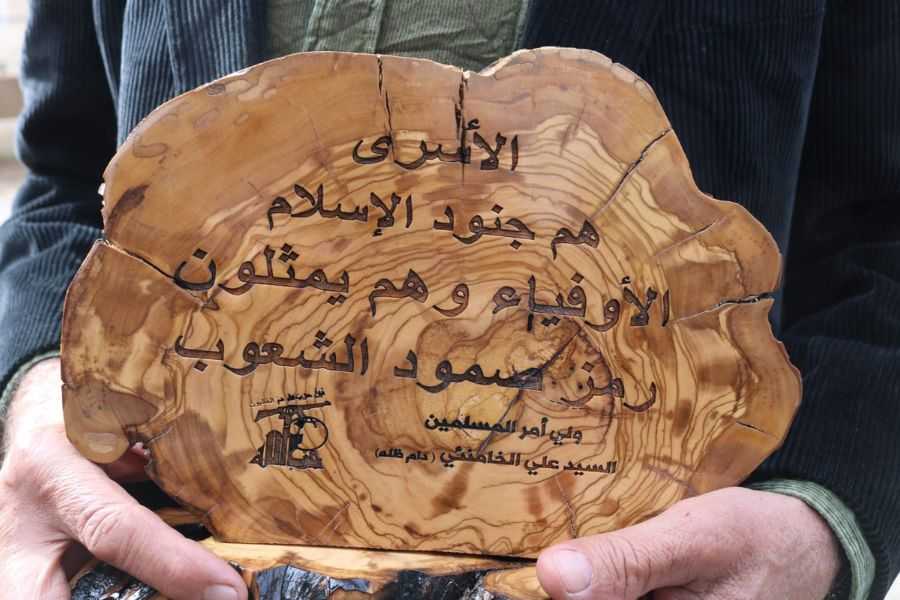 الأسرى
هم جنود الإسلام
الأوفياء وهم يمثلون
رمز صمود الشعوب
ولي أمر المسلمين
السيد علي الخامنئي (دام ظله)